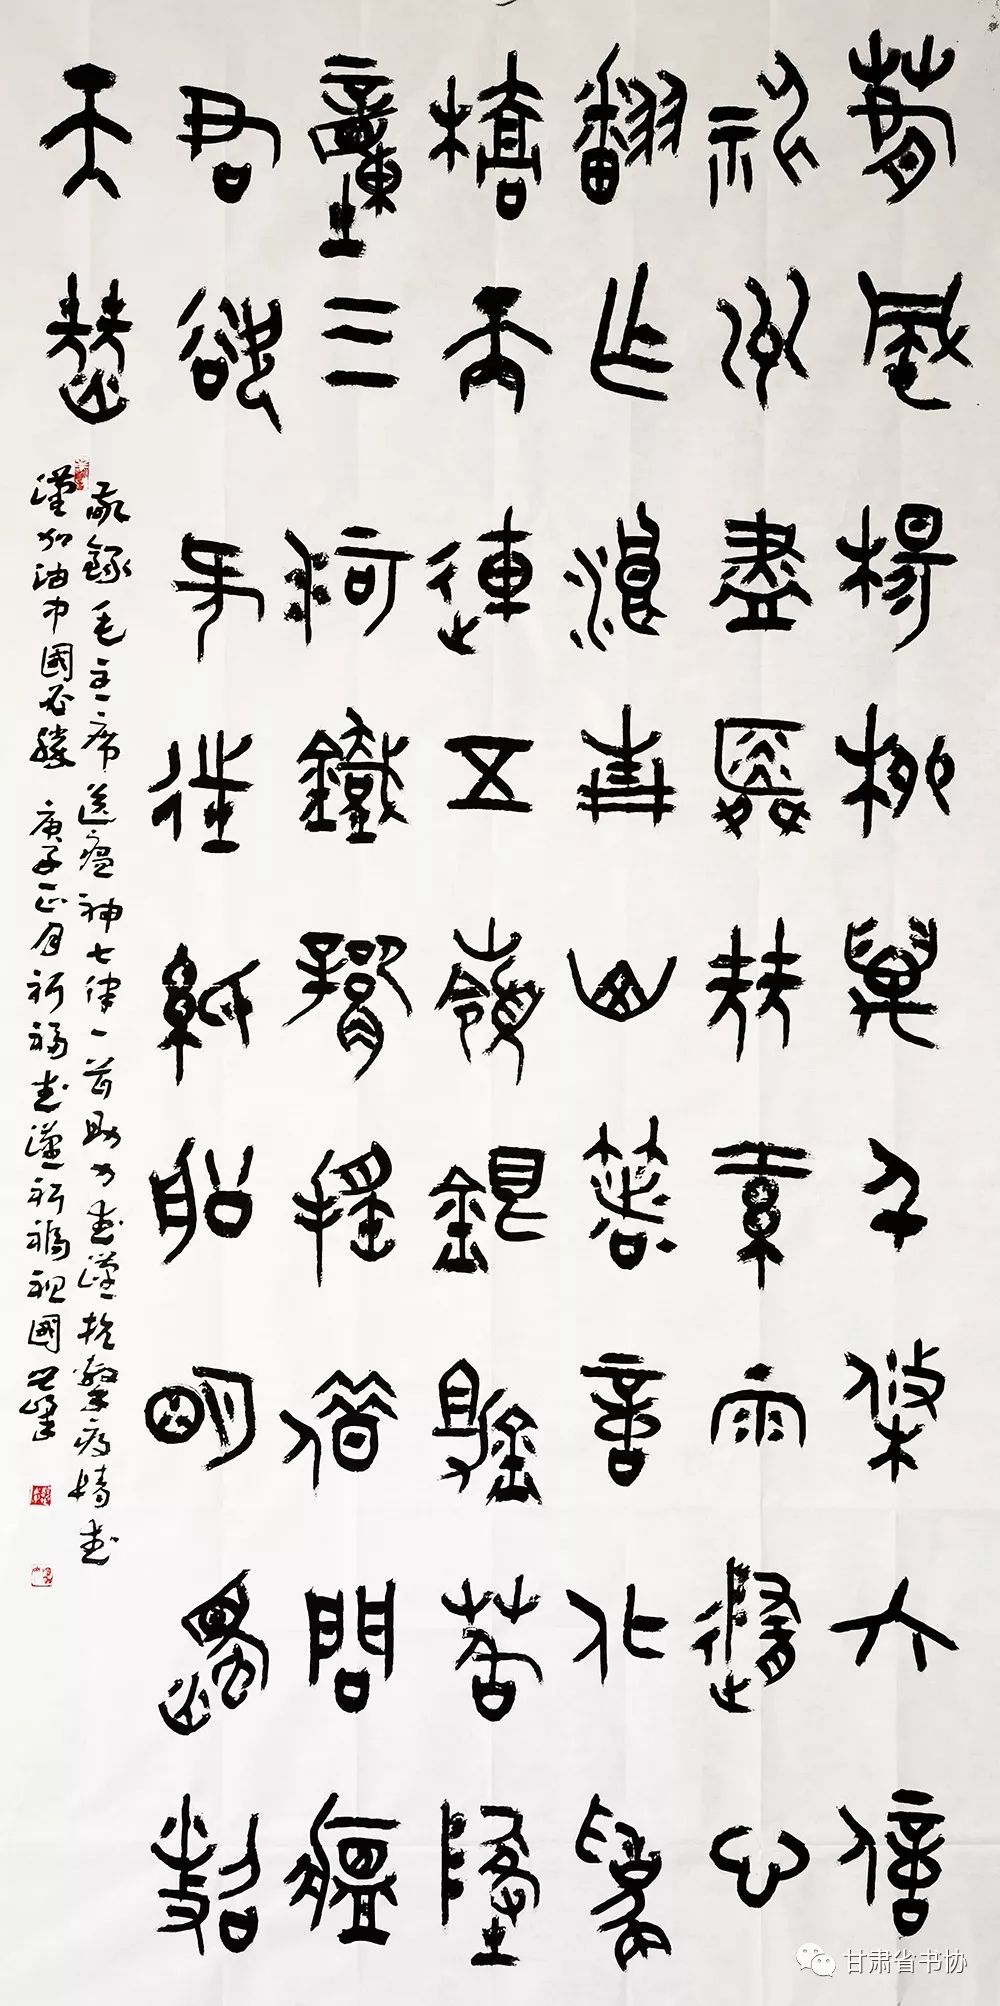 春風楊柳萬千條六億
神州盡舜堯紅雨隨心
翻作浪青山著意化為
橋天連五嶺銀鋤落地
動三河鐵臂搖借問瘟
君欲何往紙船明燭照
天燒
敬錄毛主席送瘟神七律一首助力武漢抗擊疫情武
漢加油中國必勝 庚子正月祈福武漢祈福祖國
甘肃省书协